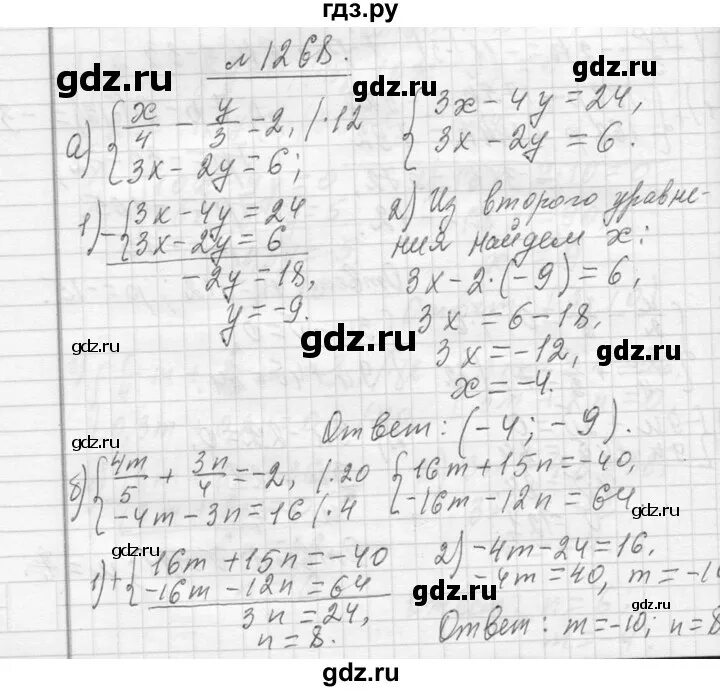 гдз.ру
№1268.
gdz.ru
gdz.ru
а) { x/4 - y/3 = 2, |·12
3x - 2y = 6;
{ 3x - 4y = 24,
3x - 2y = 6.
1) - { 3x - 4y = 24
3x - 2y = 6
-2y = 18,
y = -9.
2) Из второго уравне-
ния найдем x:
3x - 2·(-9) = 6,
3x = 6 - 18,
3x = -12,
x = -4.
gdz.ru
gdz.ru
gdz.ru
Ответ: (-4; -9).
б) { 4m/5 + 3n/4 = -2, |·20
-4m - 3n = 16 |·4
{ 16m + 15n = -40,
-16m - 12n = 64
gdz.ru
gdz.ru
1) + { 16m + 15n = -40
-16m - 12n = 64
3n = 24,
n = 8.
2) -4m - 24 = 16,
-4m = 40, m = -1
gdz.ru
gdz.ru
Ответ: m = -10; n = 8
gdz.ru